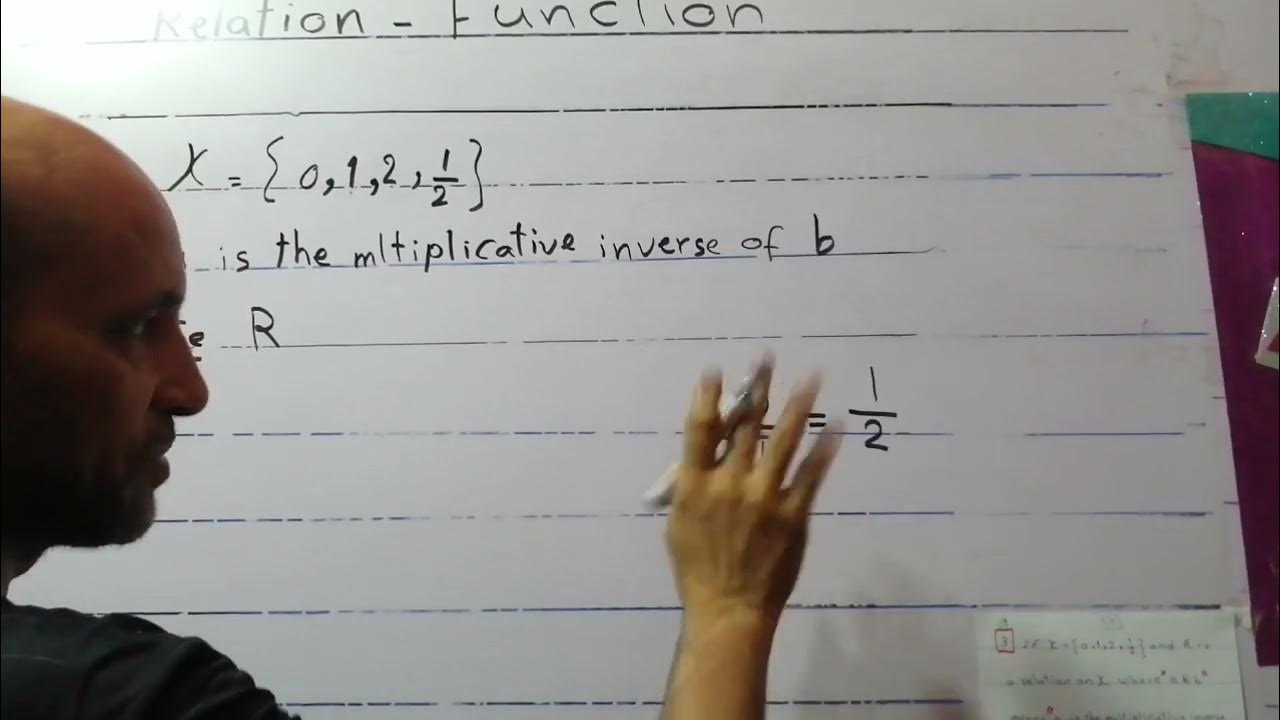 Relation - Function
X = { 0, 1, 2, 1/2 }
is the mltiplicative inverse of b
R
= 1/2
3 if X = {0,1,2,1/2} and R is
a relation on X where "a R b"